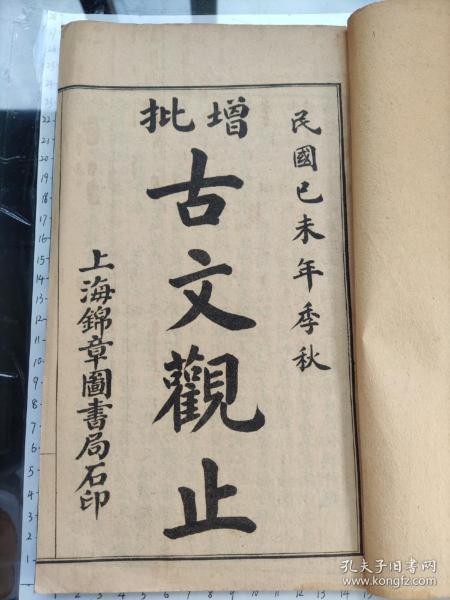 民國己未年季秋
增批
古文觀止
上海錦章圖書局石印
孔夫子旧书网
www.kongfz.com